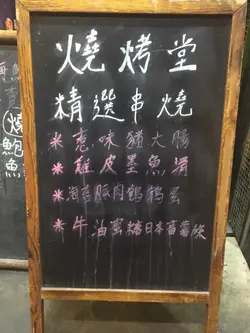 燒烤堂
精選串燒
*蔥味豬大腸
*雞皮墨魚滑
*海苔豚肉鵪鶉蛋
*牛油蜜糖日本蕃薯
燒
鮑
魚